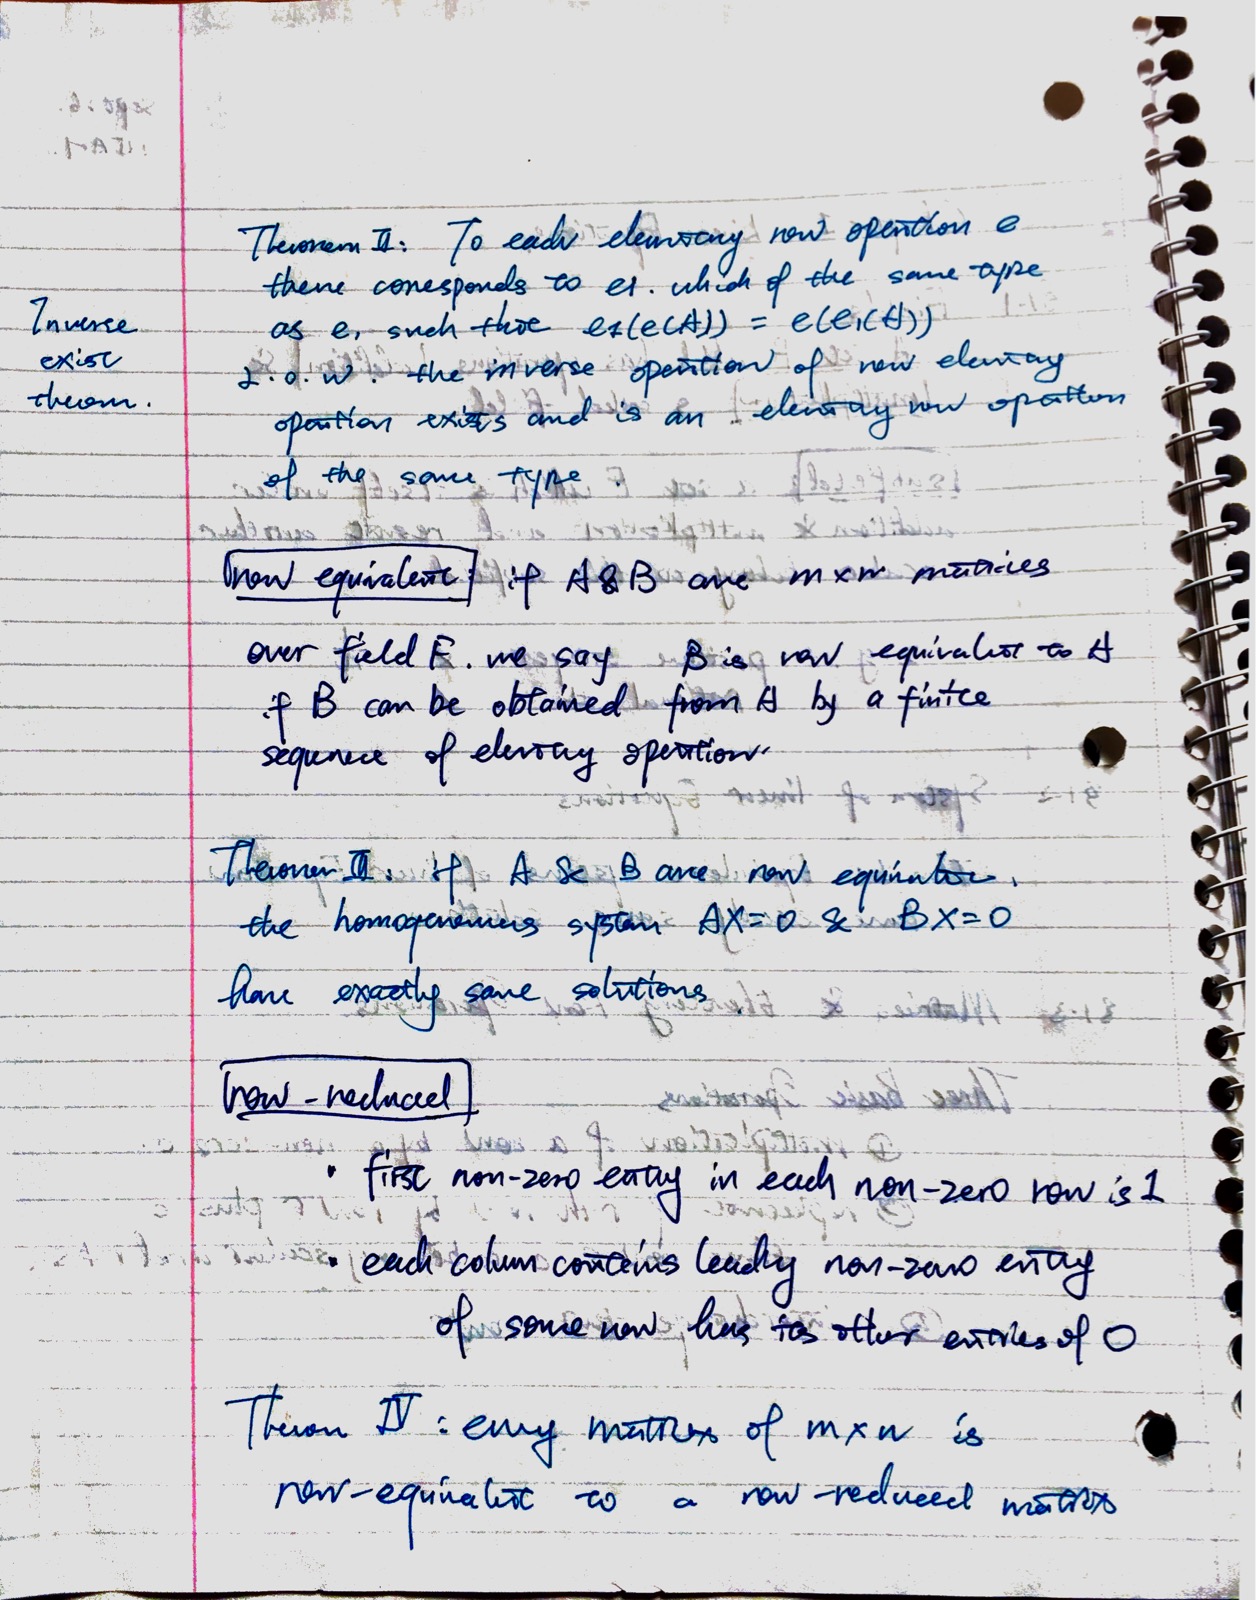 Theorem II: To each elementary row operation e
there corresponds to e1. which of the same type
as e, such that e1(e(A)) = e(e1(A))
I.o.w. the inverse operation of row elemtary
opertion exists and is an elemtary row opertion
of the same type.
Inverse
exist
theorem.
row equivalent: if A & B are m x n matrices
over field F. we say B is row equivalent to A
if B can be obtained from A by a finite
sequence of elemtary opertion.
Theorem III: if A & B are row equivalent.
the homogeneous system AX=0 & BX=0
have exactly same solutions.
row-reduced
• first non-zero entry in each non-zero row is 1
• each colum contains leading non-zero entry
of some row has its other entries of 0
Theorem IV: every matrix of m x n is
row-equivalent to a row-reduced matrix